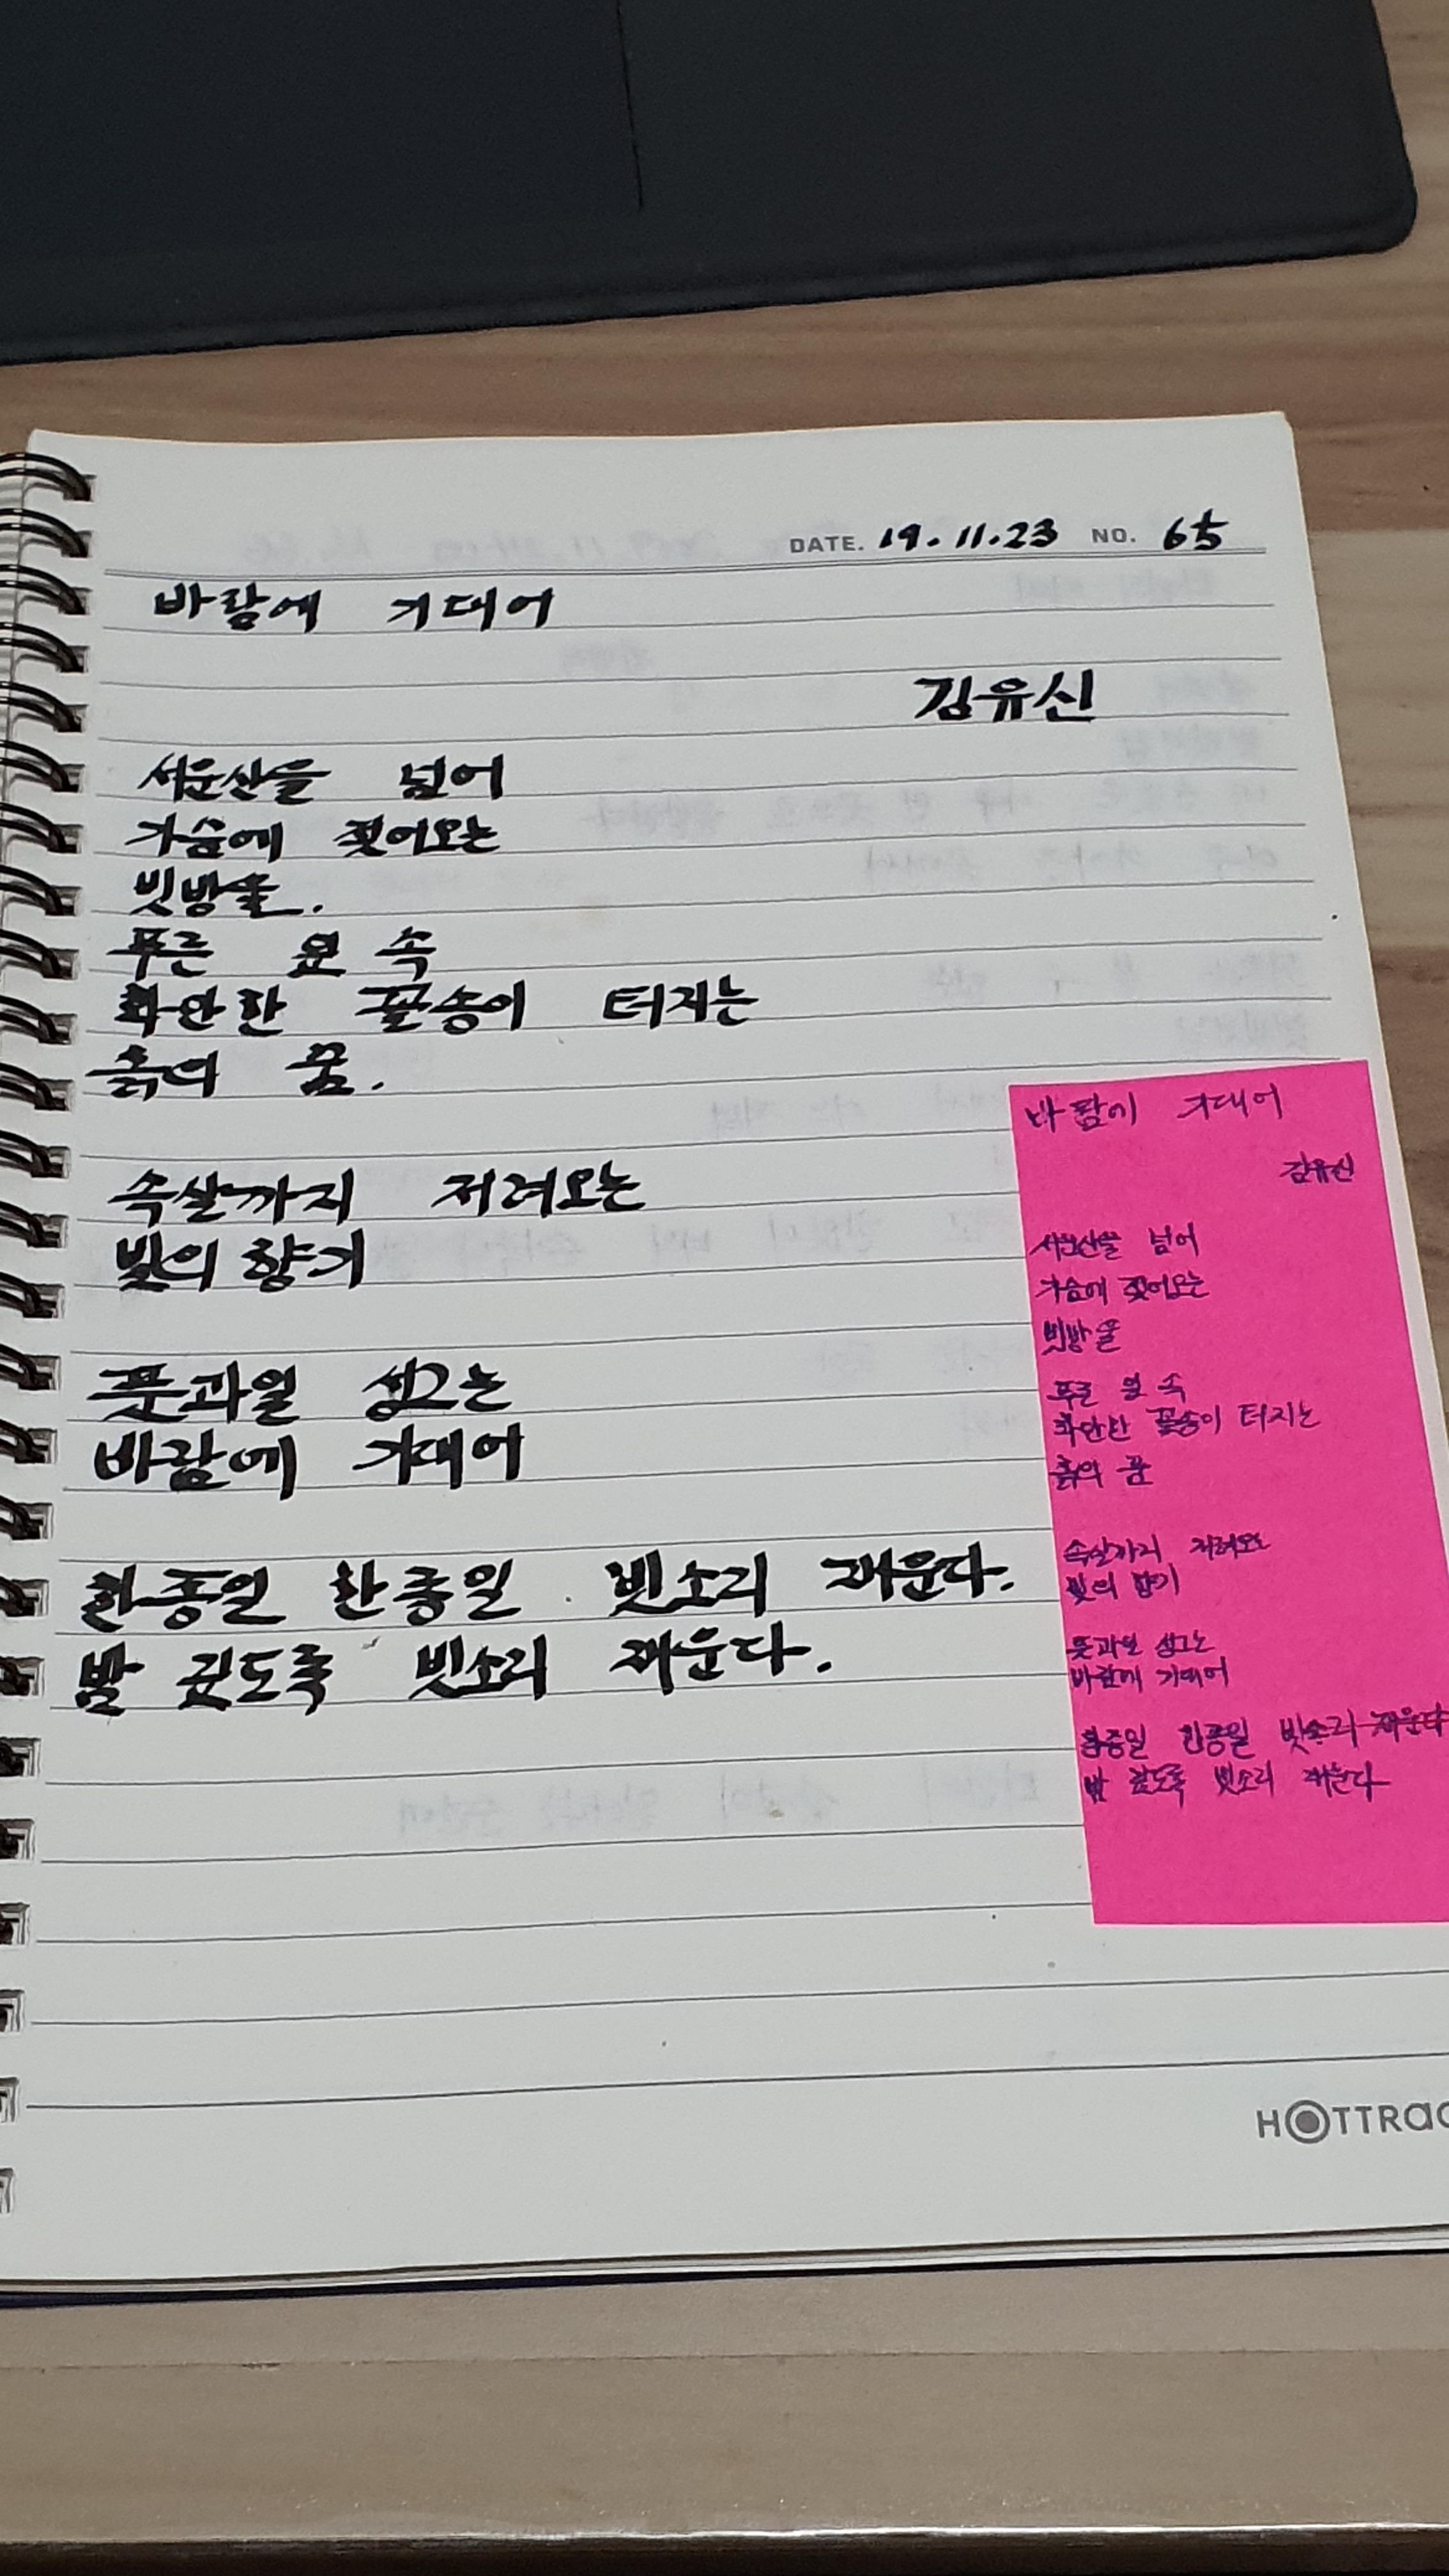 DATE. 19.11.23 NO. 65
바람에 기대어
김유신
서운산을 넘어
가슴에 젖어오는
빗방울.
푸른 잎 속
화안한 꽃송이 터지는
흙의 꿈.
속살까지 저려오는
빛의 향기
풋과일 싱그는
바람에 기대어
한종일 한종일 빗소리 재운다.
밤 깊도록 빗소리 재운다.
바람에 기대어
김유신
서운산을 넘어
가슴에 젖어오는
빗방울
푸른 잎 속
화안한 꽃송이 터지는
흙의 꿈
속살까지 저려오는
빛의 향기
풋과일 싱그는
바람에 기대어
한종일 한종일 빗소리 재운다
밤 깊도록 빗소리 재운다
HOTTRAC